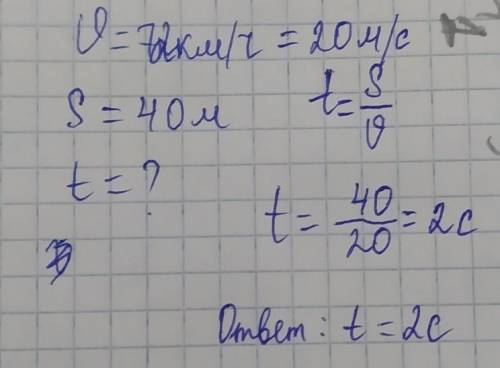 υ = 72км/ч = 20м/с
S = 40м
t = S/υ
t = ?
t = 40/20 = 2с
Ответ: t = 2с